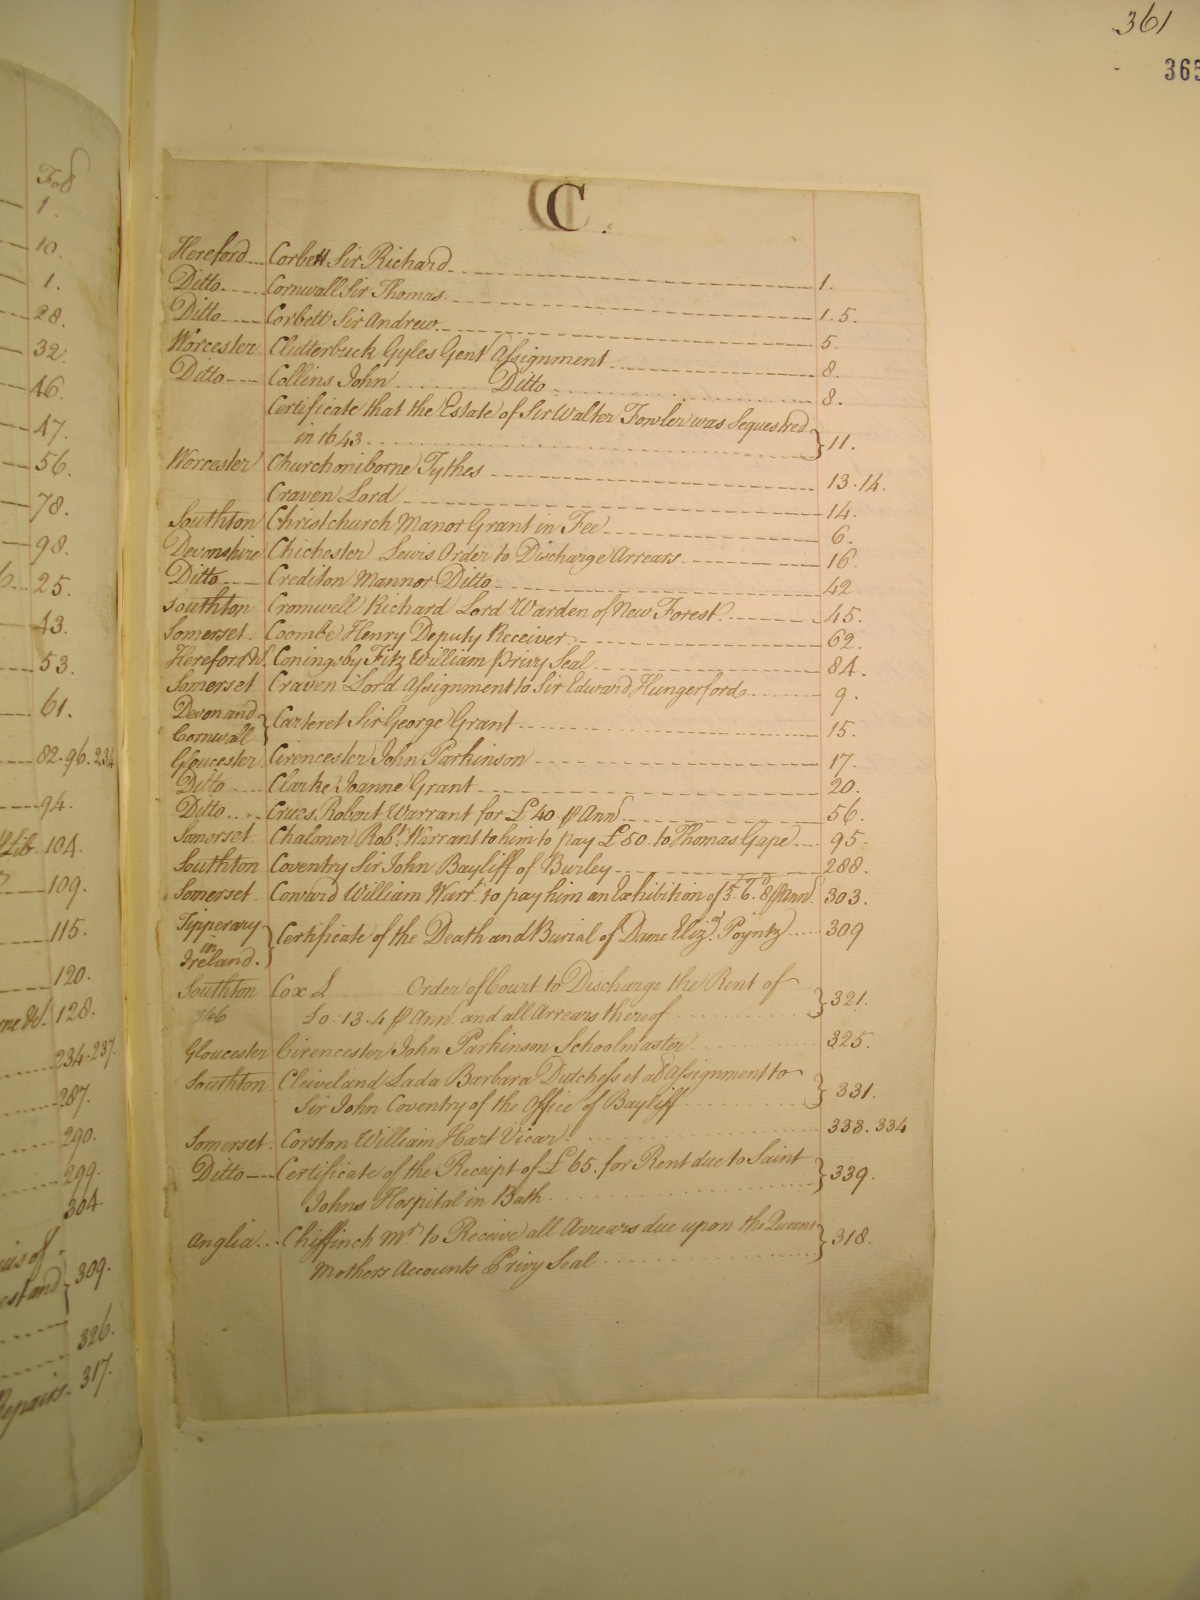 361
365
Fol
1.
10.
1.
28.
32.
46.
47.
56.
78.
98.
25.
43.
53.
61.
82.96.234
94.
104.
109.
115.
120.
128.
234.237.
287.
290.
299.
304
309.
326.
Repairs. 317.
C.
Hereford Corbett Sir Richard 1.
Ditto Cornwall Sir Thomas 1.5.
Ditto Corbett Sir Andrew 5.
Worcester Clutterbuck Gyles Gent Assignment 8.
Ditto Collins John Ditto 8.
Certificate that the Estate of Sir Walter Fowler was Sequestred
in 1643 11.
Worcester Churchoniborne Tythes 13.14.
Craven Lord 14.
Southton Christchurch Manor Grant in Fee 6.
Devonshire Chichester Lewis Order to Discharge Arrears 16.
Ditto Crediton Mannor Ditto 42.
Southton Cromwell Richard Lord Warden of New Forest 45.
Somerset Coombe Henry Deputy Receiver 62.
Hereford &c. Coningsby Fitz William Privy Seal 84.
Somerset Craven Lord Assignment to Sir Edward Hungerford 9.
Devon and
Cornwall Carteret Sir George Grant 15.
Gloucester Cirencester John Parkinson 17.
Ditto Clarke Joanne Grant 20.
Ditto Crues Robert Warrant for £40 ℘ Ann 56.
Somerset Chaloner Robt. Warrant to him to pay £50. to Thomas Gape 95.
Southton Coventry Sir John Bayliff of Burley 288.
Somerset Conward William Warrt. to pay him an Exhibition of 5.6.8 ℘ Ann 303.
Tipperary
in
Ireland. Certificate of the Death and Burial of Dame Eliz. Poyntz 309
Southton Cox L Order of Court to Discharge the Rent of
346 £0.13.4 ℘ Ann. and all Arrears thereof 321.
Gloucester Cirencester John Parkinson Schoolmaster 325.
Southton Cleiveland Lada Barbara Dutchess et al Assignment to
Sir John Coventry of the Office of Bayliff 331.
Somerset Corston William Hart Vicar. 333.334
Ditto Certificate of the Receipt of £65. for Rent due to Saint
Johns Hospital in Bath 339.
Anglia Chiffinch Mr. to Receive all Arrears due upon the Queens
Mothers Accounts Privy Seal 318.